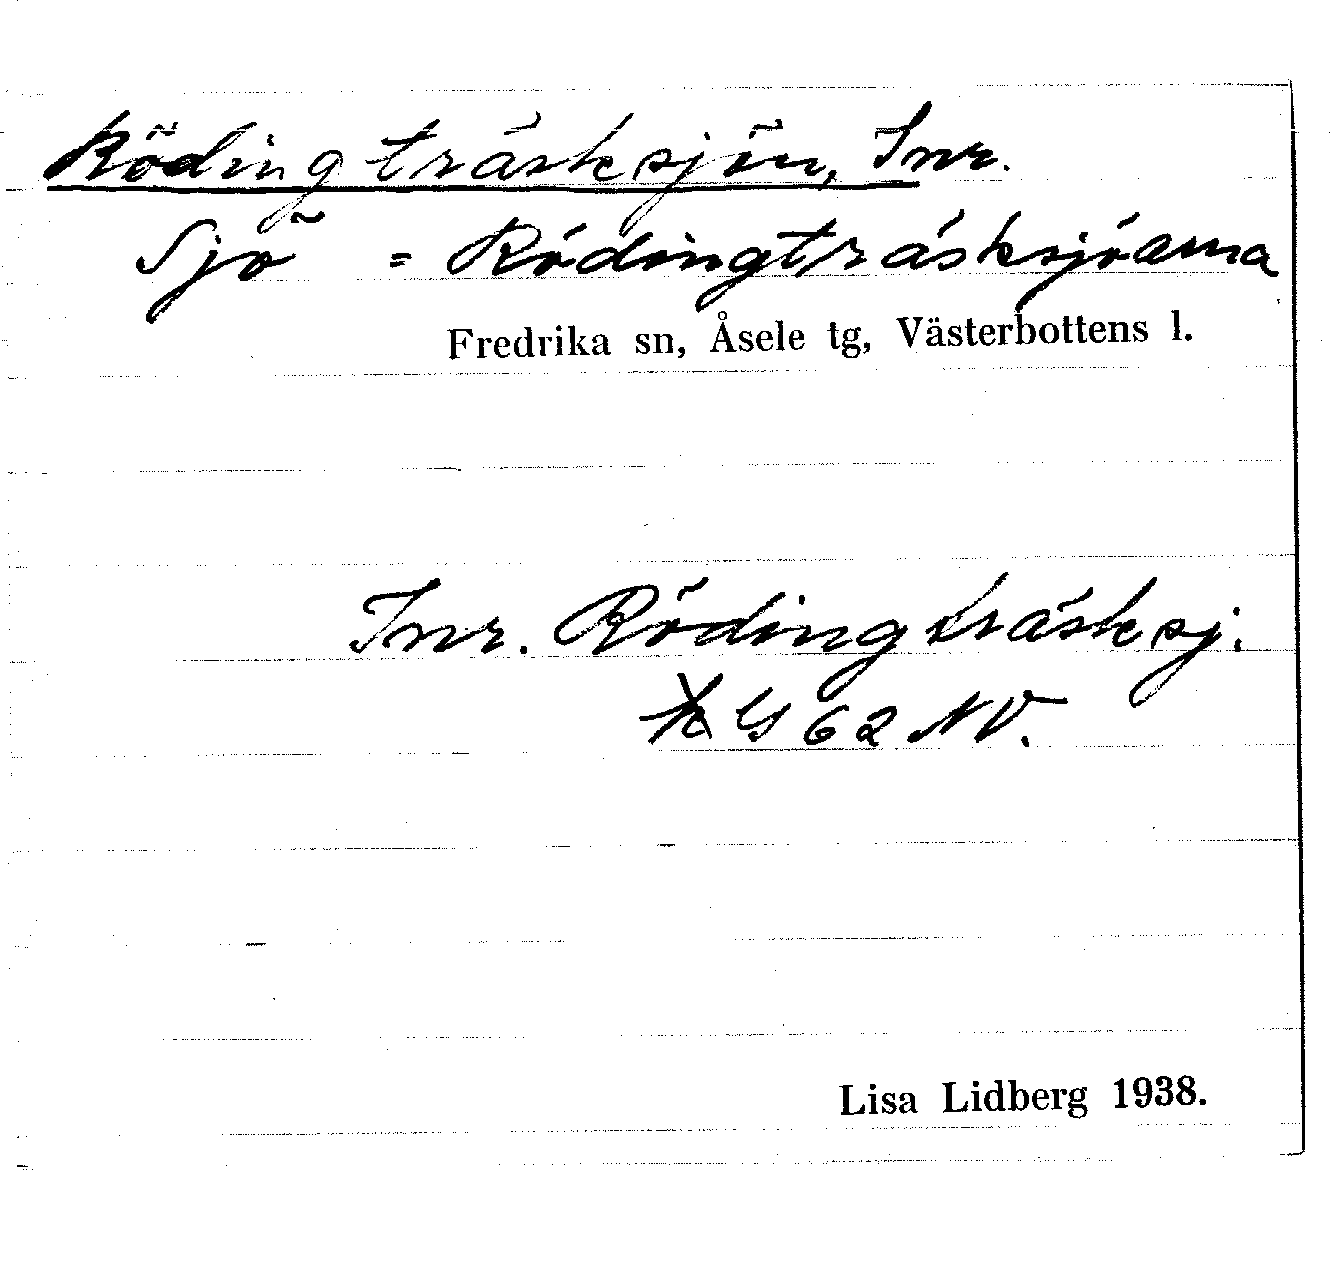 Rödingträsksjön, Inr.
Sjö = Rödingträsksjöarna
Fredrika sn, Åsele tg, Västerbottens l.
Inr. Rödingträsksj.
G 62 NV.
Lisa Lidberg 1938.